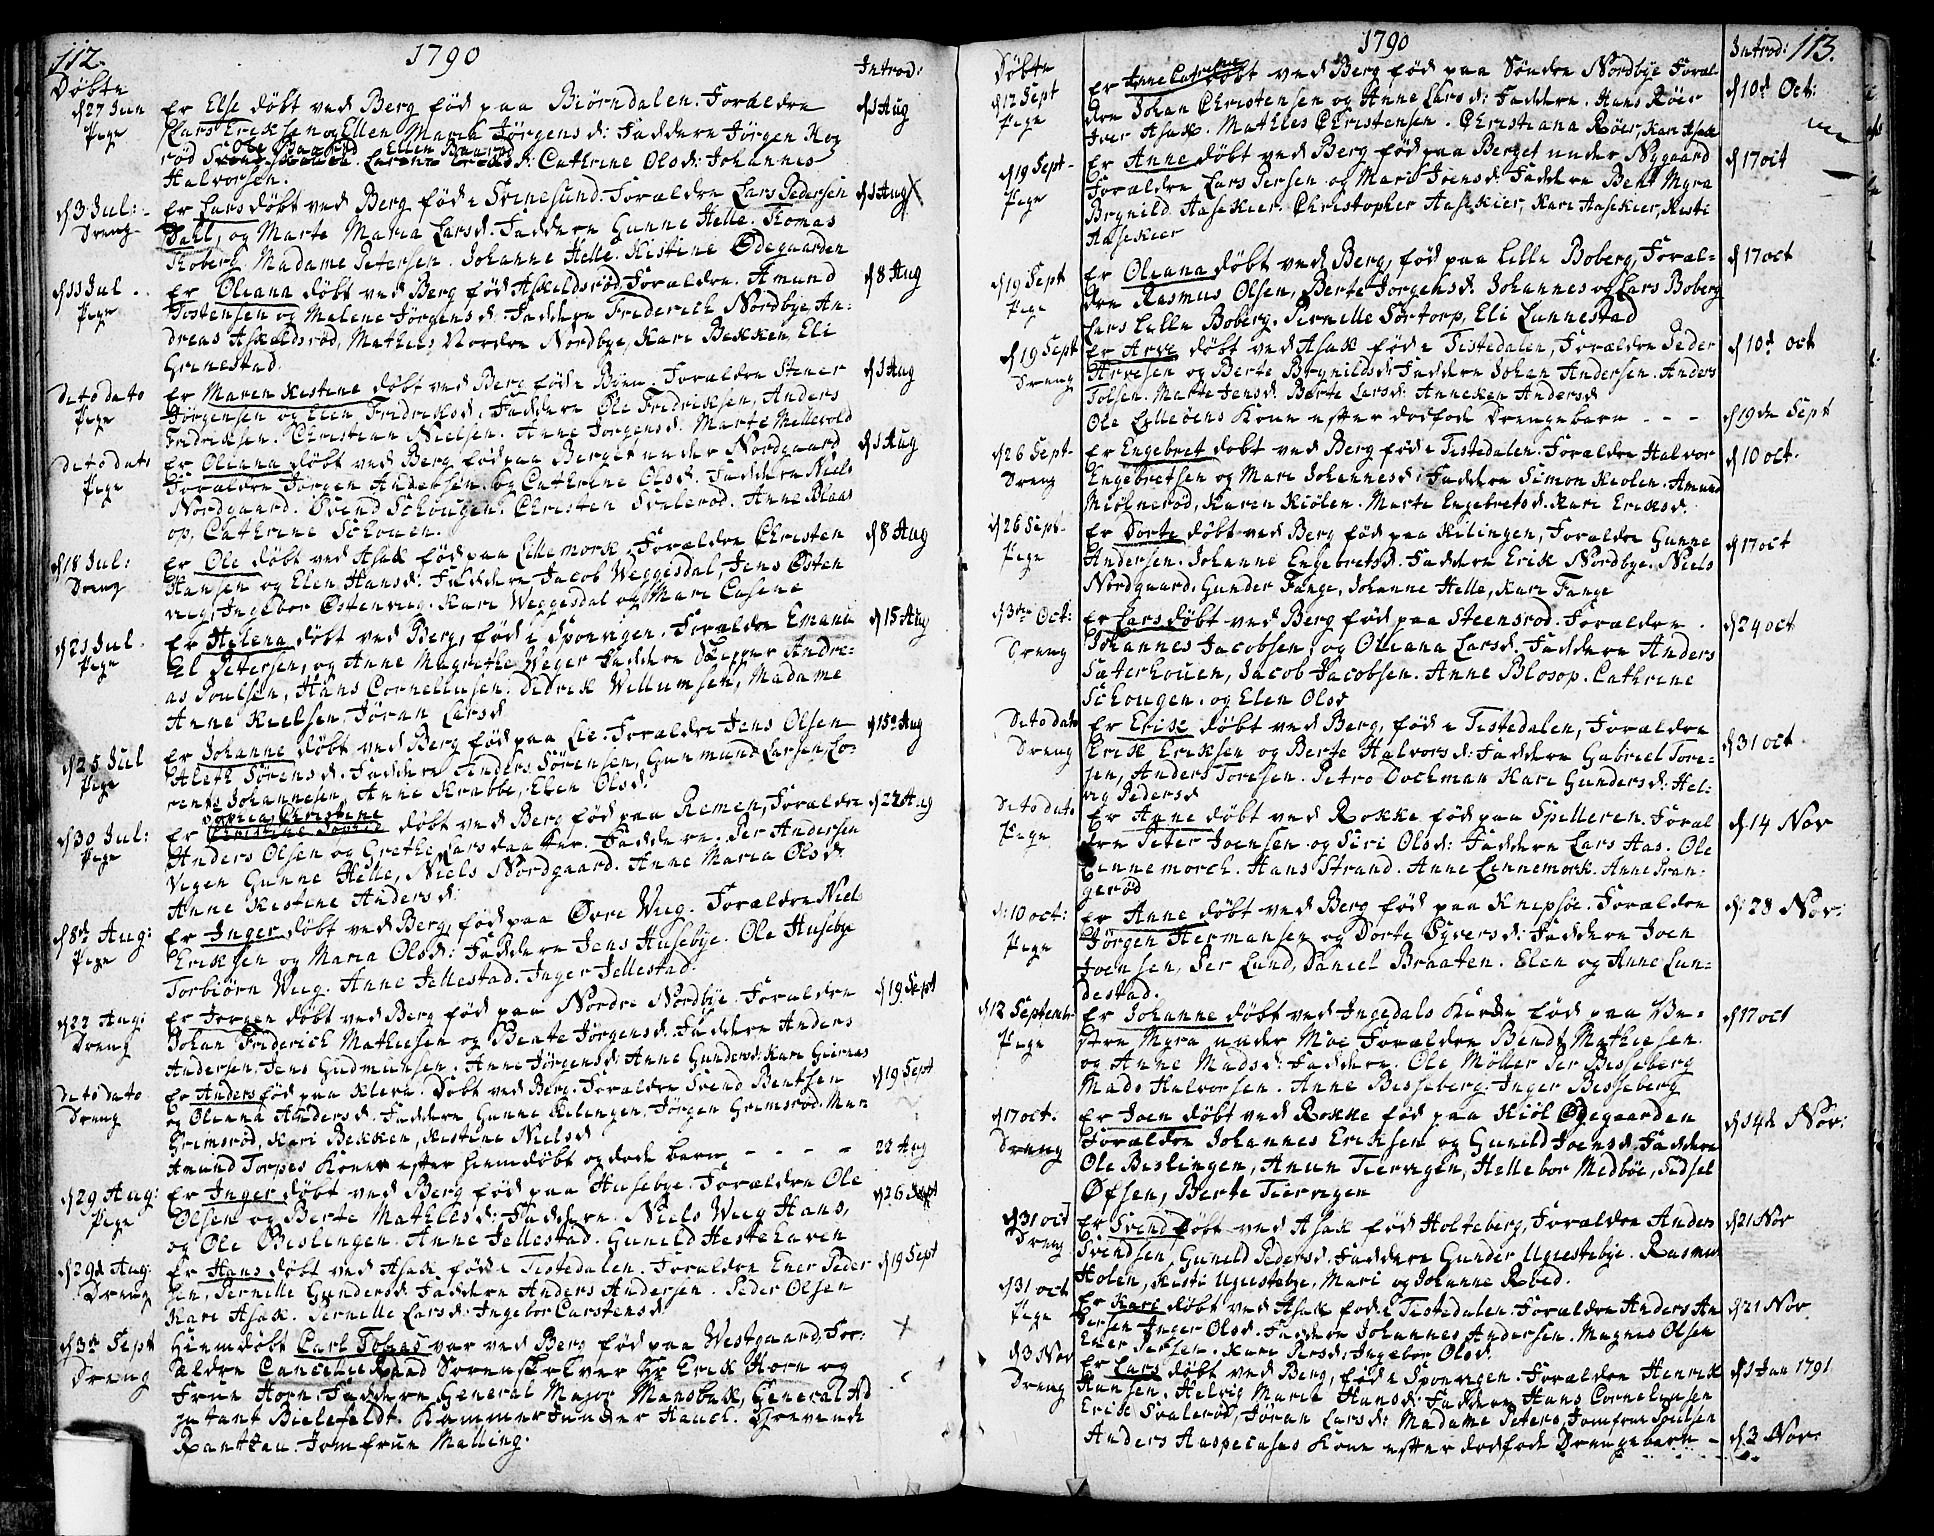 112.
1790
Introd:
Döbte
d 27 Jun
Pige
Er Else döbt ved Berg föd paa Biörndalen. Forældre
d 1 Aug
Lars Eriksen og Ellen Maria Jörgensd: Faddere Jörgen
Cathrine Olsd: Johannes
Halvorsen.
d 3 Jul:
Dreng
Er Lars döbt ved Berg föd i Svinesund. Forældre Lars Pedersen
d 1 Aug X
Dahl, og Marte Maria Larsd: Faddere Gunne Helle. Thomas
Koberg. Madame Petersen. Johanne Helle. Kistine Ödegaarden
d 11 Jul
Pige
Er Oleana döbt ved Berg föd Askeldsröd, Forældre. Amund
d 8 Aug
Jostensen og Malene Jörgensd: Faddere Friderich Nordbye, An-
dreas Askeldsröd, Mathias Nordre Nordbye, Kari Bekken, Eli
Grinestad.
Dito dato
Pige
Er Maren Kistine döbt ved Berg föd i Byen Forældre Stener
d 1 Aug
Jörgensen og Elen Fridriksd: Faddere Ole Fridriksen, Anders
Fridriksen. Christian Nielsen. Anne Jörgensd: Marte Mellerold
Dito dato
Pige
Er Oleana döbt ved Berg föd paa Berget under Nordgaard
d 1 Aug
Forældre Jörgen Andersen og Cathrine Olsd: Faddere Niels
Nordgaard. Svend Schougen. Christen Svaleröd. Anne Blaas
op, Cathrine Schouen.
d 18 Jul:
Dreng
Er Ole döbt ved Asak föd paa Lillemork Forældre Christen
d 8 Aug
Hansen og Elen Hansd: Faddere Jacob Weggesdal, Jens Östen
vieg, Ingebor Östenvieg. Kari Weggesdal og Mari
d 21 Jul.
Pige
Er Helena döbt ved Berg, föd i Sponvigen. Forældre Emanu
d 15 Aug
El Petersen, og Anne Magrethe Weger Faddere Skipper Andre-
as Poulsen, Hans Corneliusen: Didrik Willumsen, Madame
Anne Kielsen, Jöran Larsd
d 25 Jul
Pige
Er Johanne döbt ved Berg föd paa Lie. Forældre Jens Olsen
d 15 Aug
Aleth Sörensd: Faddere Anders Sörensen, Gunmund Larsen, Lo-
rents Johannesen, Anne Krabbe, Elen Olsd.
d 30 Jul:
Pige
Er Sophia Christine döbt ved Berg föd paa Remen, Forældre
d 22 Aug
Anders Olsen og Grethe Larsdaatter. Faddere. Per Andersen
Vegen Gunne Helle, Niels Nordgaard. Anne Maria Olsd:
Anne Kistine Andersd:
d 8de Aug:
Pige
Er Inger döbt ved Berg, föd paa Övre Wiig. Forældre Niels
Eriksen og Maria Olsd: Faddere Jens Husebye. Ole Husebye
Torbiörn Wiig. Anne Jellestad. Inger Jellestad.
d 22 Aug:
Dreng
Er Jorgen döbt ved Berg föd paa Nordre Nordbye. Forældre
d 19 Sept
Johan Friderich Mathiesen og Beate Jörgensd: Faddere Anders
Andersen. Jens Gudmunsen. Anne Jörgensd: Anne Gundersd: Kari
Dito dato
Dreng
Er Anders föd paa Kleva. Döbt ved Berg. Forældre Svend Bentsen
d 19 Sept
og Oleana Andersd. Faddere Gunne Kilingen, Jörgen Grimsröd. Mar
Grimsröd, Kari Bekken, Kistine Nielsd
Amund Torpes Kone efter hiemdöbt og döde barn - - - -
22 Aug
d 29 Aug:
Pige
Er Inger döbt ved Berg föd paa Husebye. Forældre Ole
d 26 Sept
Olsen og Berte Mathiesd: Faddere. Niels Wiig Hans,
og Ole Bislingen. Anne Jellestad. Gunild Hestehaven
d 29d Aug:
Dreng
Er Hans döbt ved Asak föd i Tistedalen. Forældre Ener Peder
d 19 Sept
sen, Pernelle Gundersd: Faddere Anders Andersen. Peder Olsen
Kari Asak. Pernelle Larsd: Ingebor Carstensd
d 3de Sept
Dreng
Hiemdöbt Carl Tobias var ved Berg föd paa Westgaard. For-
X
ældre CancellieRaad Sorenskriver Hr Erik Horn og
Frue Horn. Faddere General Major Mansbak, General Ad
jutant Bielefeldt. Kammer Junker Hauch. Grevinde
Rantzau. Jomfrue Malling.
1790
Introd: 113.
Döbte
d 12 Sept
Pige
Er Anne Catrine döbt ved Berg föd paa Söndre Nordbye Foræl-
d 10de Oct:
dre Johan Christensen og Anne Larsd: Faddere. Hans Röer
Iver Asak. Mathies Christensen. Christiana Röer, Kari Asak
d 19 Sept-
Pige
Er Anne döbt ved Berg föd paa Berget under Nygaard
d 17 oct
Forældre Lars Persen og Mari Ivensd: Faddere Bent Myra
Brynild Aasekier. Christopher Aasekier, Kari Aasekier, Kisti
Aasekier
d 19 Sept
Pige
Er Oleana döbt ved Berg, föd paa Lille Boberg, Foræl-
d 17 oct
dre Rasmus Olsen, Berte Jörgensd: Johannes og Lars Boberg
Lars Lille Boberg. Pernelle Sörtorp, Eli Lunnestad
d 19 Sept
Dreng
Er Arve döbt ved Asak föd i Tistedalen, Forældre Peder
d 10de oct
Arvesen og Berte Brynildsd: Faddere Johan Andersen. Anders
Tolsen. Marte Jensd: Berte Larsd: Anneken Andersd
Ole Lilleöens Kone efter dödföde Drengebarn - - -
d 19de Sept
d 26 Sept
Dreng
Er Engebret döbt ved Berg föd i Tistedalen. Forældre Halvor
d 10 oct.
Engebretsen og Mari Johannesd: Faddere Simon Kiölen. Amund
Miölneröd, Karen Kiölen. Marte Engebretsd. Kari Eriksd:
d 26 Sept
Pige
Er Dorte döbt ved Berg föd paa Kilingen, Forældre Gunne
d 17 oct
Andersen. Johanne Engebretsd: Faddere Erik Nordbye. Niels
Nordgaard. Gunder Fange, Johanne Helle, Kari Fange
d 3de Oct:
Dreng
Er Lars döbt ved Berg föd paa Steensröd. Forældre
d 24 oct
Johannes Jacobsen, og Oleana Larsd: Faddere Anders
Saterhouen, Jacob Jacobsen. Anne Blosop. Cathrine
Schougen. og Elen Olsd
Dito dato
Dreng
Er Erik döbt ved Berg, föd i Tistedalen, Forældre
d 31 oct
Erik Eriksen og Berte Halvorsd: Faddere Gabriel Tore-
sen, Anders Toresen. Petro Dochman Kari Gundersd: Hel-
vig Pedersd
Dito dato
Pige
Er Anne döbt ved Rokke föd paa Spelleren. Foræl
d. 14 Nov
dre Peter Joensen og Siri Olsd: Faddere Lars Aas. Ole
Linnemorch. Hans Strand. Anne Linnemork. Anne Pran-
geröd
d: 10 oct:
Pige
Er Anne döbt ved Berg föd paa Knipsöe. Forældre
d: 28 Nov:
Jörgen Hermansen og Dorte Syversd: Faddere Joen
Joensen, Per Lund, Daniel Braaten. Elen og Anne Lun-
destad.
d 12 Septembr
Pige
Er Johanne döbt ved Ingedals Kirke föd paa Ve-
d 17 oct
stre Myra under Moe Forældre Bendt Mathiesen
og Anne Madsd: Faddere. Ole Möller Per Bisseberg
Mads Halvorsen. Anne Bisseberg. Inger Besseberg
d 17 oct.
Dreng
Er Joen döbt ved Rokke föd paa Kiöl Ödegaarden
d 14de Nov:
Forældre Johannes Eriksen og Gunild Joensd. Faddere
Ole Bislingen, Anun Tiervigen, Hellebor Medböe, Sidsel
Öfsen, Berte Tiervigen
d 31 oct
Dreng
Er Svend döbt ved Asak föd Holteberg, Forældre Anders
d 21 Nov
Svendsen, Gunild Pedersd: Faddere Gunder Ugustebye. Rasmus
Holen, Kisti Ugustebye, Mari og Johanne Röed.
d 31 oct
Pige
Er Kari döbt ved Asak föd i Tistedalen. Forældre Anders An
d 21 Nov
dersen Inger Olsd. Faddere Johannes Andersen. Magnis Olsen
Ener Persen. Kari Persd: Ingebor Olsd.
d 3 Nov
Dreng
Er Lars döbt ved Berg, föd i Sponvigen. Forældre Henrik
d 1 Jan 1791
Hansen. Helvig Maria Hansd: Faddere Hans Corneliusen
Erik Svaleröd, Jöran Larsd: Madame Peters, Jomfrue Poulsen
Anders Aaspecasas Kone efter dödföde Drengebarn -
d 3 Nov: